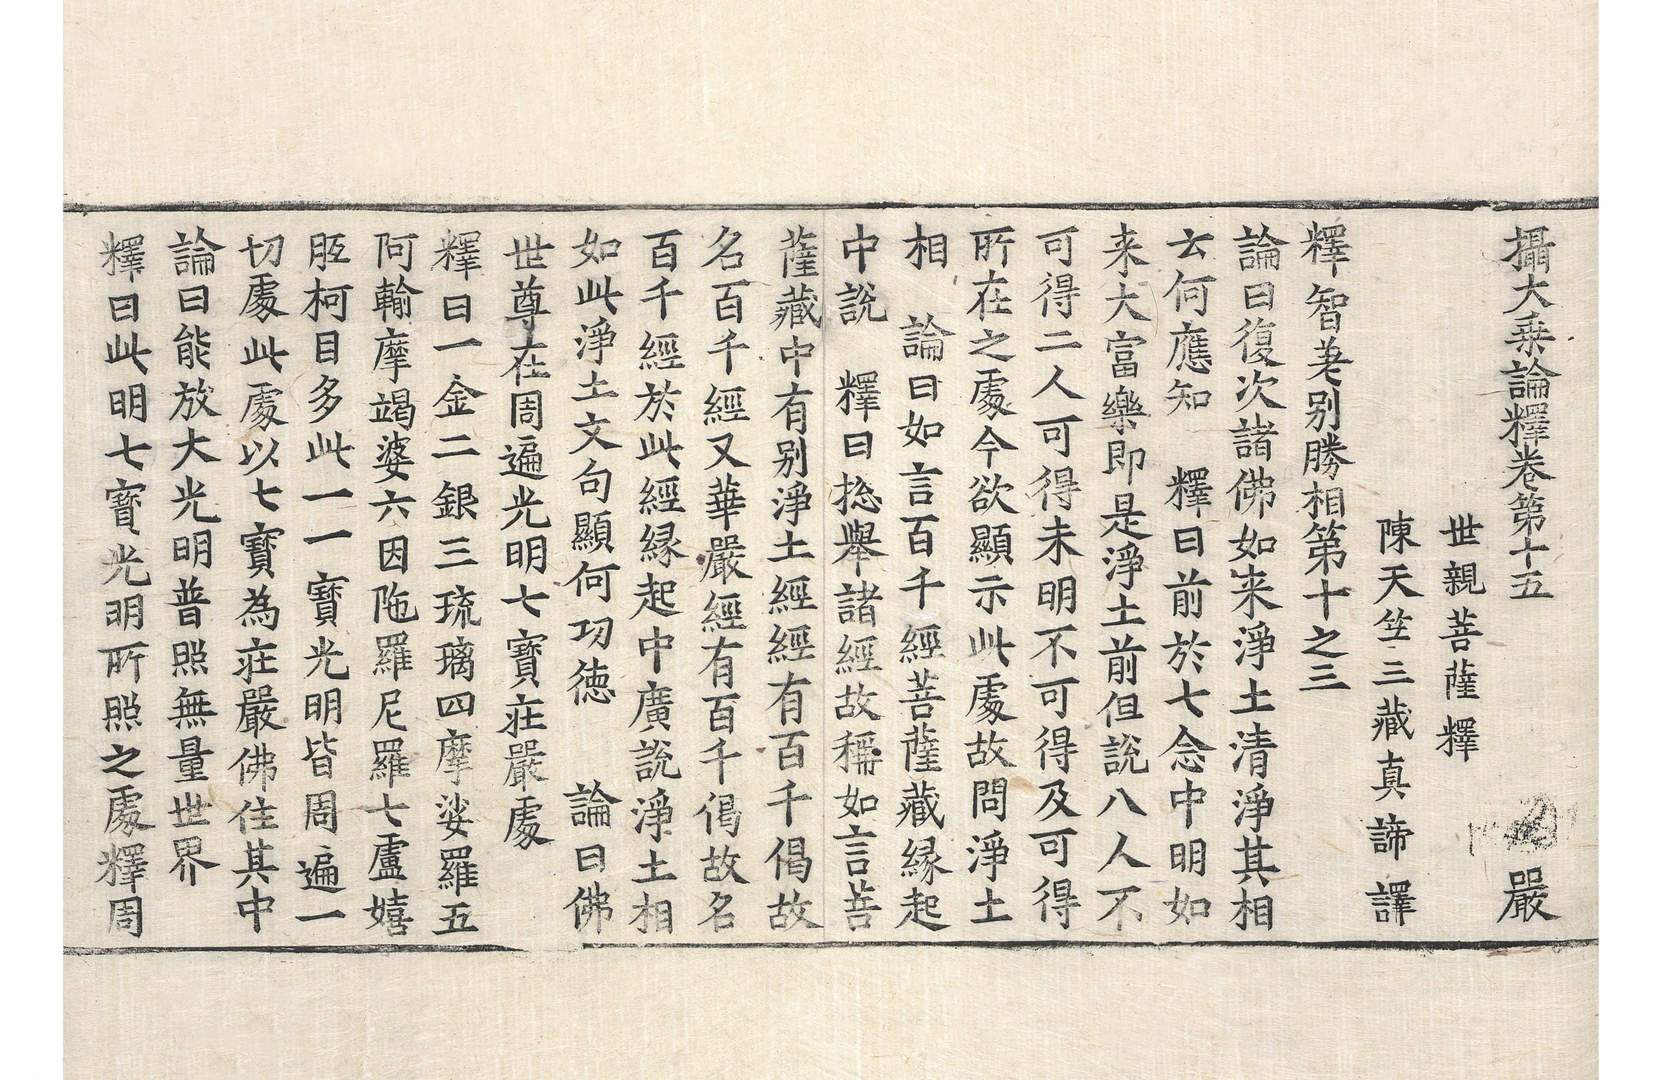 攝大乗論釋卷第十五 嚴
世親菩薩釋
陳天竺三藏真諦譯
釋智差别勝相第十之三
論曰復次諸佛如来淨土清淨其相
云何應知 釋曰前於七念中明如
来大富樂即是淨土前但說八人不
可得二人可得未明不可得及可得
所在之處今欲顯示此處故問淨土
相 論曰如言百千經菩薩藏縁起
中說 釋曰捴舉諸經故稱如言菩
薩藏中有别淨土經經有百千偈故
名百千經又華嚴經有百千偈故名
百千經於此經縁起中廣說淨土相
如此淨土文句顯何功徳 論曰佛
世尊在周遍光明七寶荘嚴處
釋曰一金二銀三琉璃四摩娑羅五
阿輸摩竭婆六因陁羅尼羅七盧嬉
胝柯目多此一一寶光明皆周遍一
切處此處以七寶為荘嚴佛住其中
論曰能放大光明普照無量世界
釋曰此明七寶光明所照之處釋周